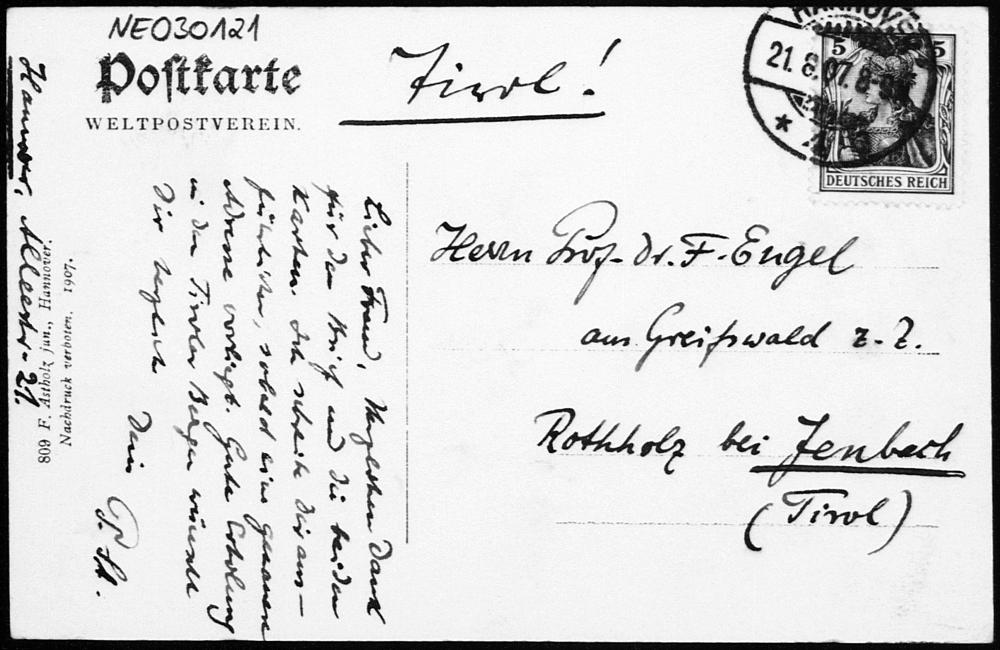 NEO30121
Postkarte
WELTPOSTVEREIN.
Tirol!
HANNOVER
21.8.07.8-
5 5
DEUTSCHES REICH
Herrn Prof. Dr. F. Engel
aus Greifswald z. Z.
Rothholz bei Jenbach
(Tirol)
Hannover, Alleestr. 21.
809 F. Astholz jun., Hannover.
Nachdruck verboten. 1907.
Lieber Freund, Herzlichen Dank
für den Brief und die beiden
Karten. Ich schreibe Dir aus-
führlicher, sobald eine genauere
Adresse vorliegt. Gute Erholung
in den Tiroler Bergen wünscht
Dir herzlich
Dein
P. St.